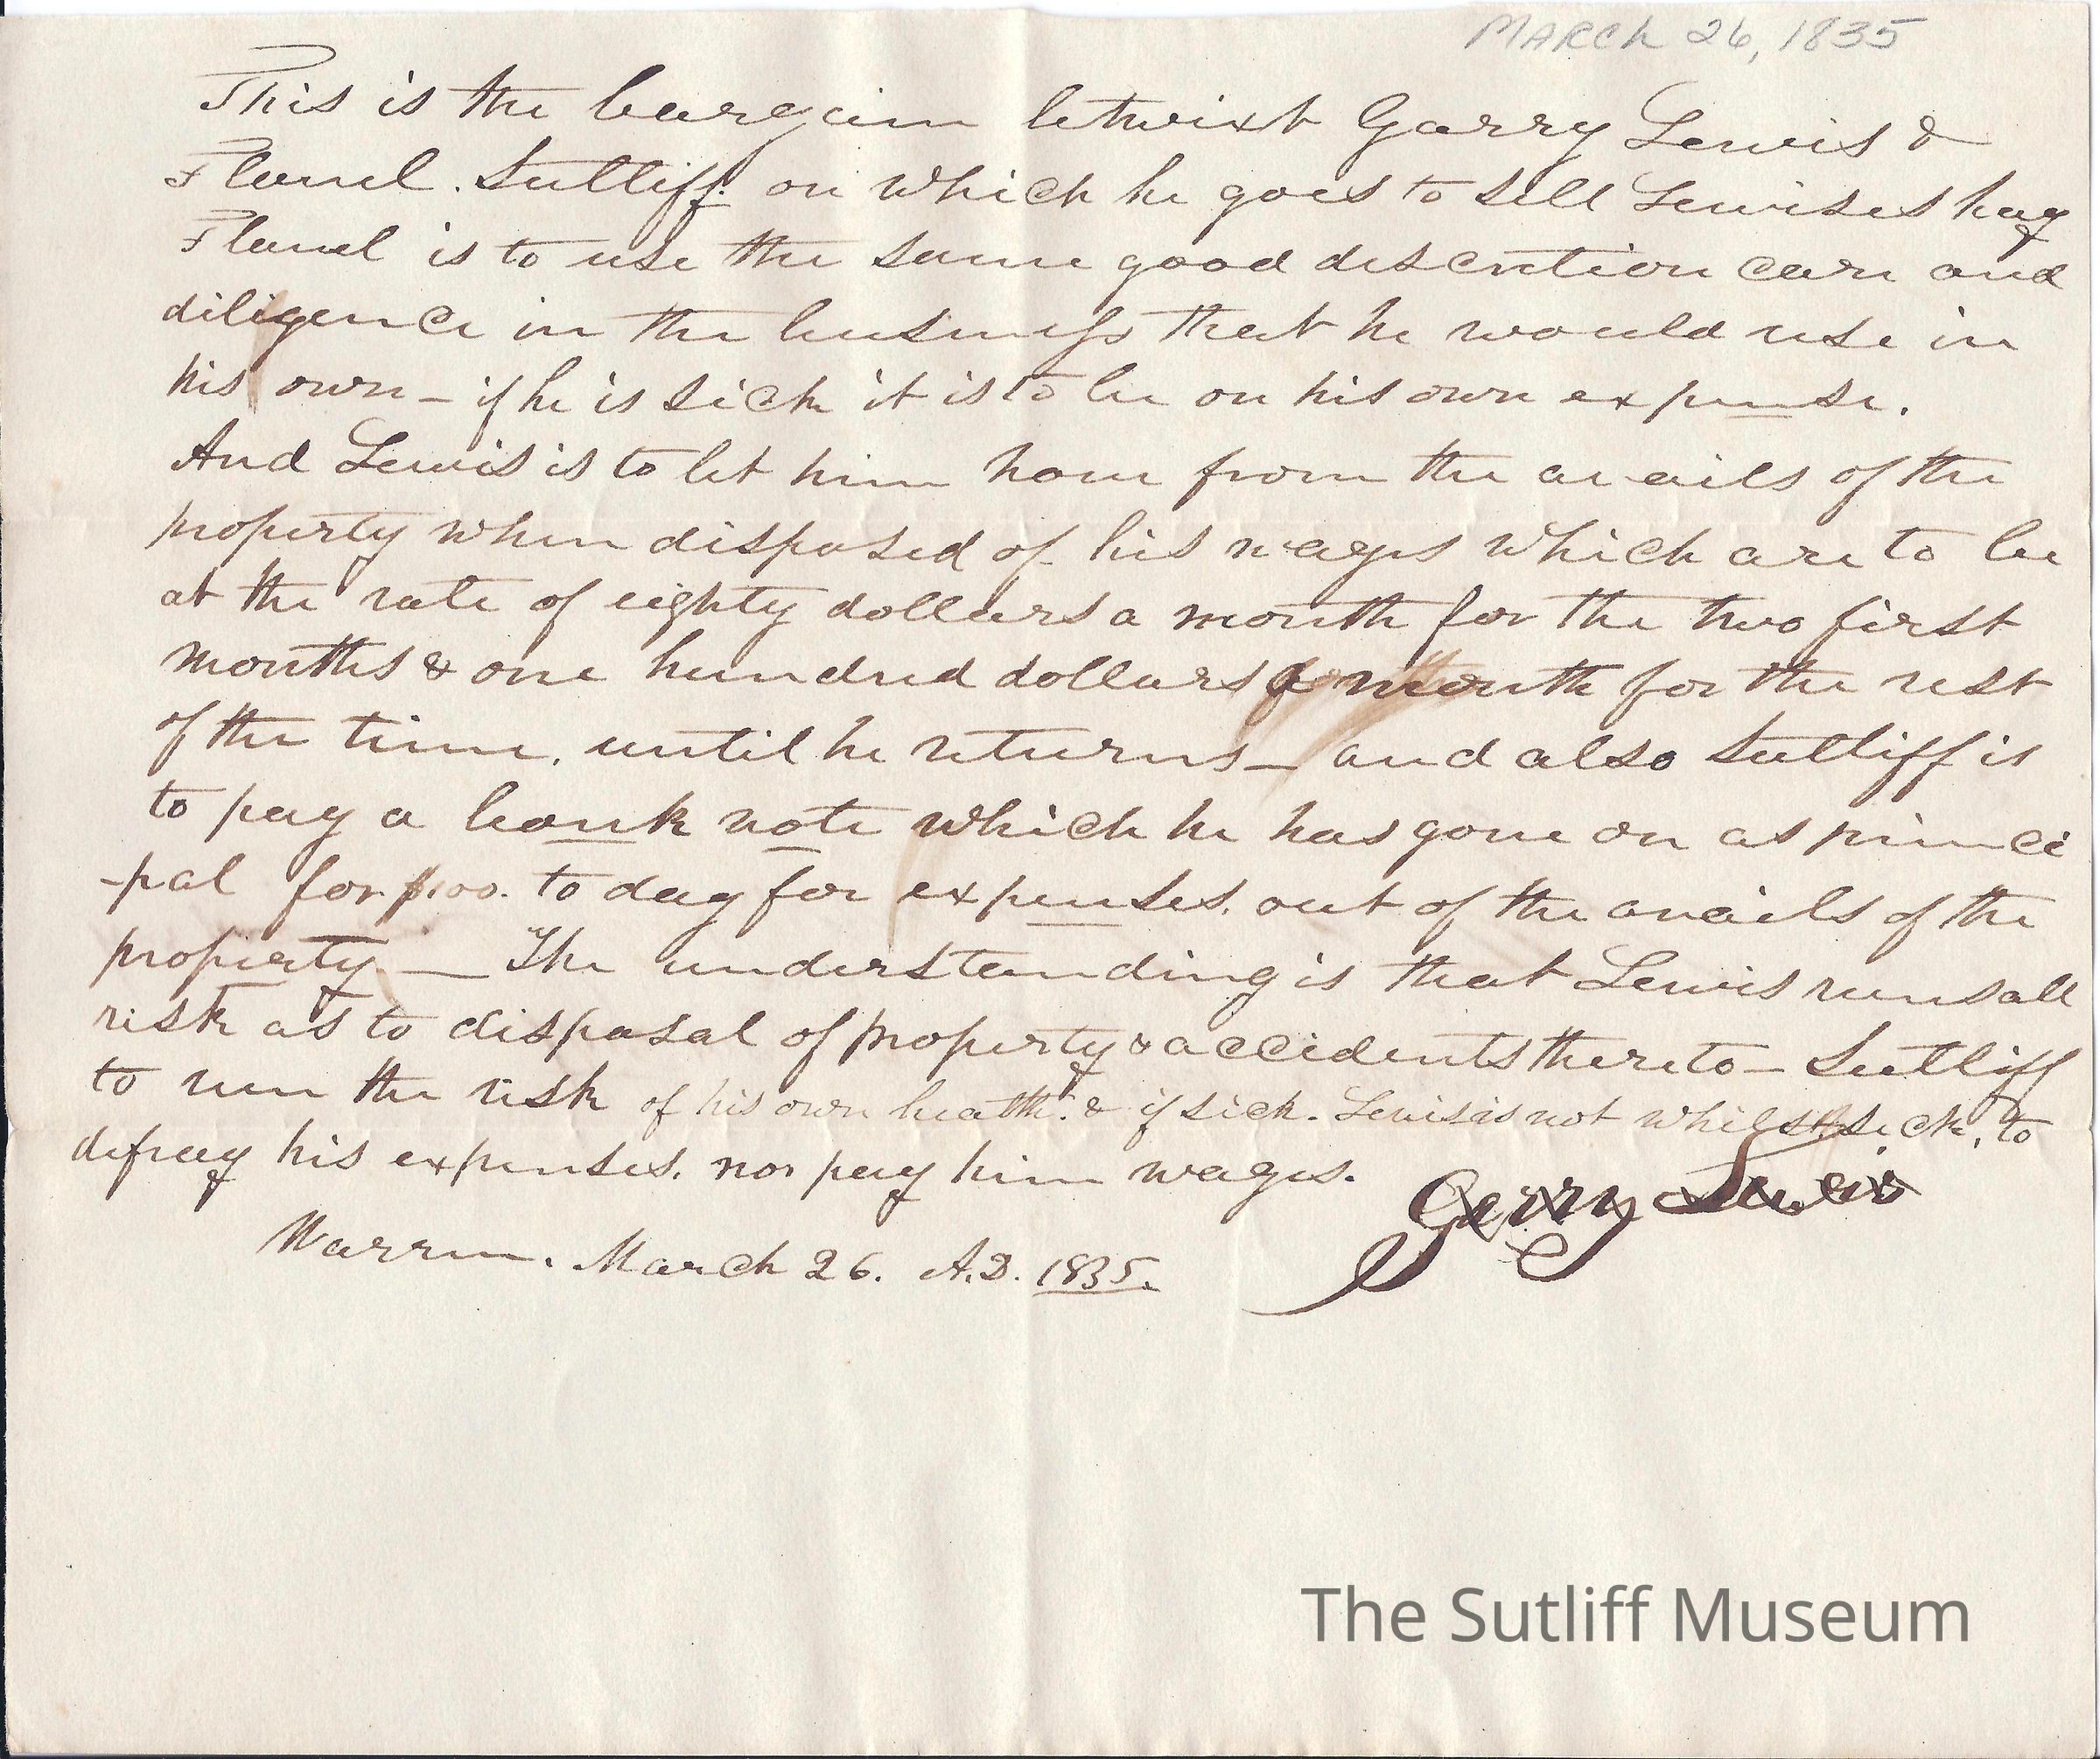 MARCH 26, 1835
This is the bargain betwixt Garry Lewis &
Flavel. Sutliff. on which he goes to sell Lewises hay
Flavel is to use the same good descretion care and
diligence in the business that he would use in
his own – if he is sick it is to be on his own expense.
And Lewis is to let him have from the avails of the
property when disposed of his wages which are to be
at the rate of eighty dollars a month for the two first
months & one hundred dollars a month for the rest
of the time, until he returns – and also Sutliff is
to pay a bank note which he has gone on as princi
-pal for $100. to day for expenses, out of the avails of the
property – The understanding is that Lewis runs all
risk as to disposal of property & accidents thereto – Sutliff
to run the risk of his own heath. & if sick. Lewis is not whilst sick, to
defray his expenses. nor pay him wages.
Garry Lewis
Warren. March 26. A.D. 1835.
The Sutliff Museum